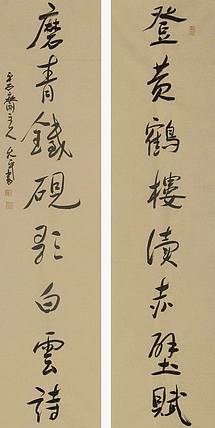 登黄鶴樓讀赤壁賦
磨青鐵硯歌白雲詩